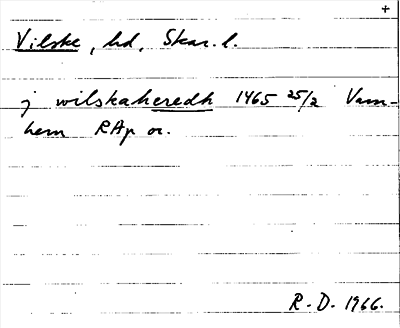 +
Vilske, hd, Skar. l.
j wilskaheredh 1465 25/2 Varn-
hem RAp or.
R. D. 1966.